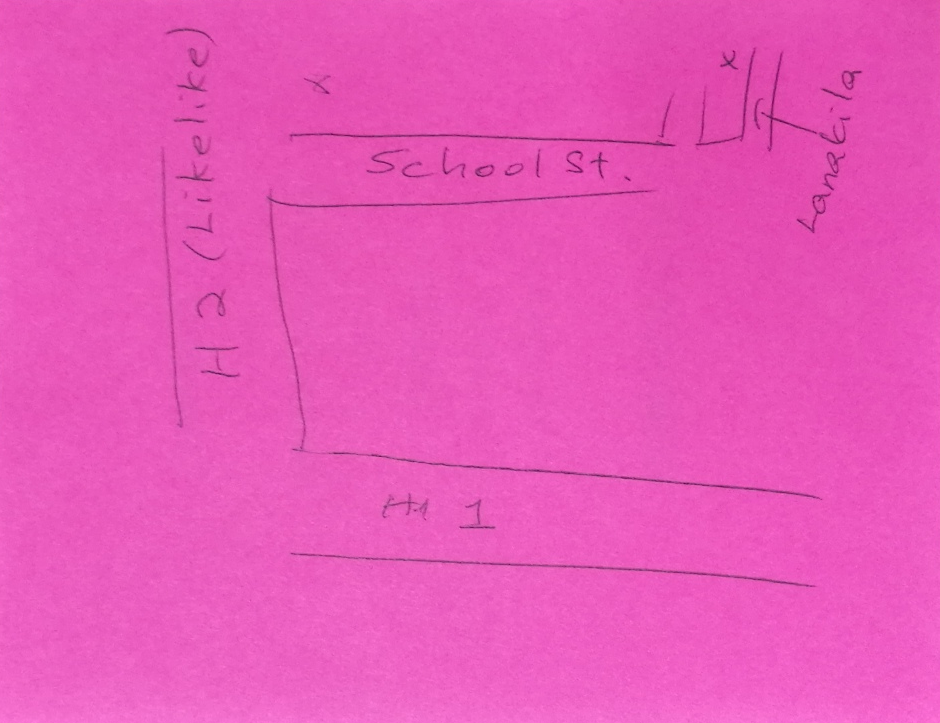 H2 (Likelike)
x
x
School St.
Lanakila
H1 1